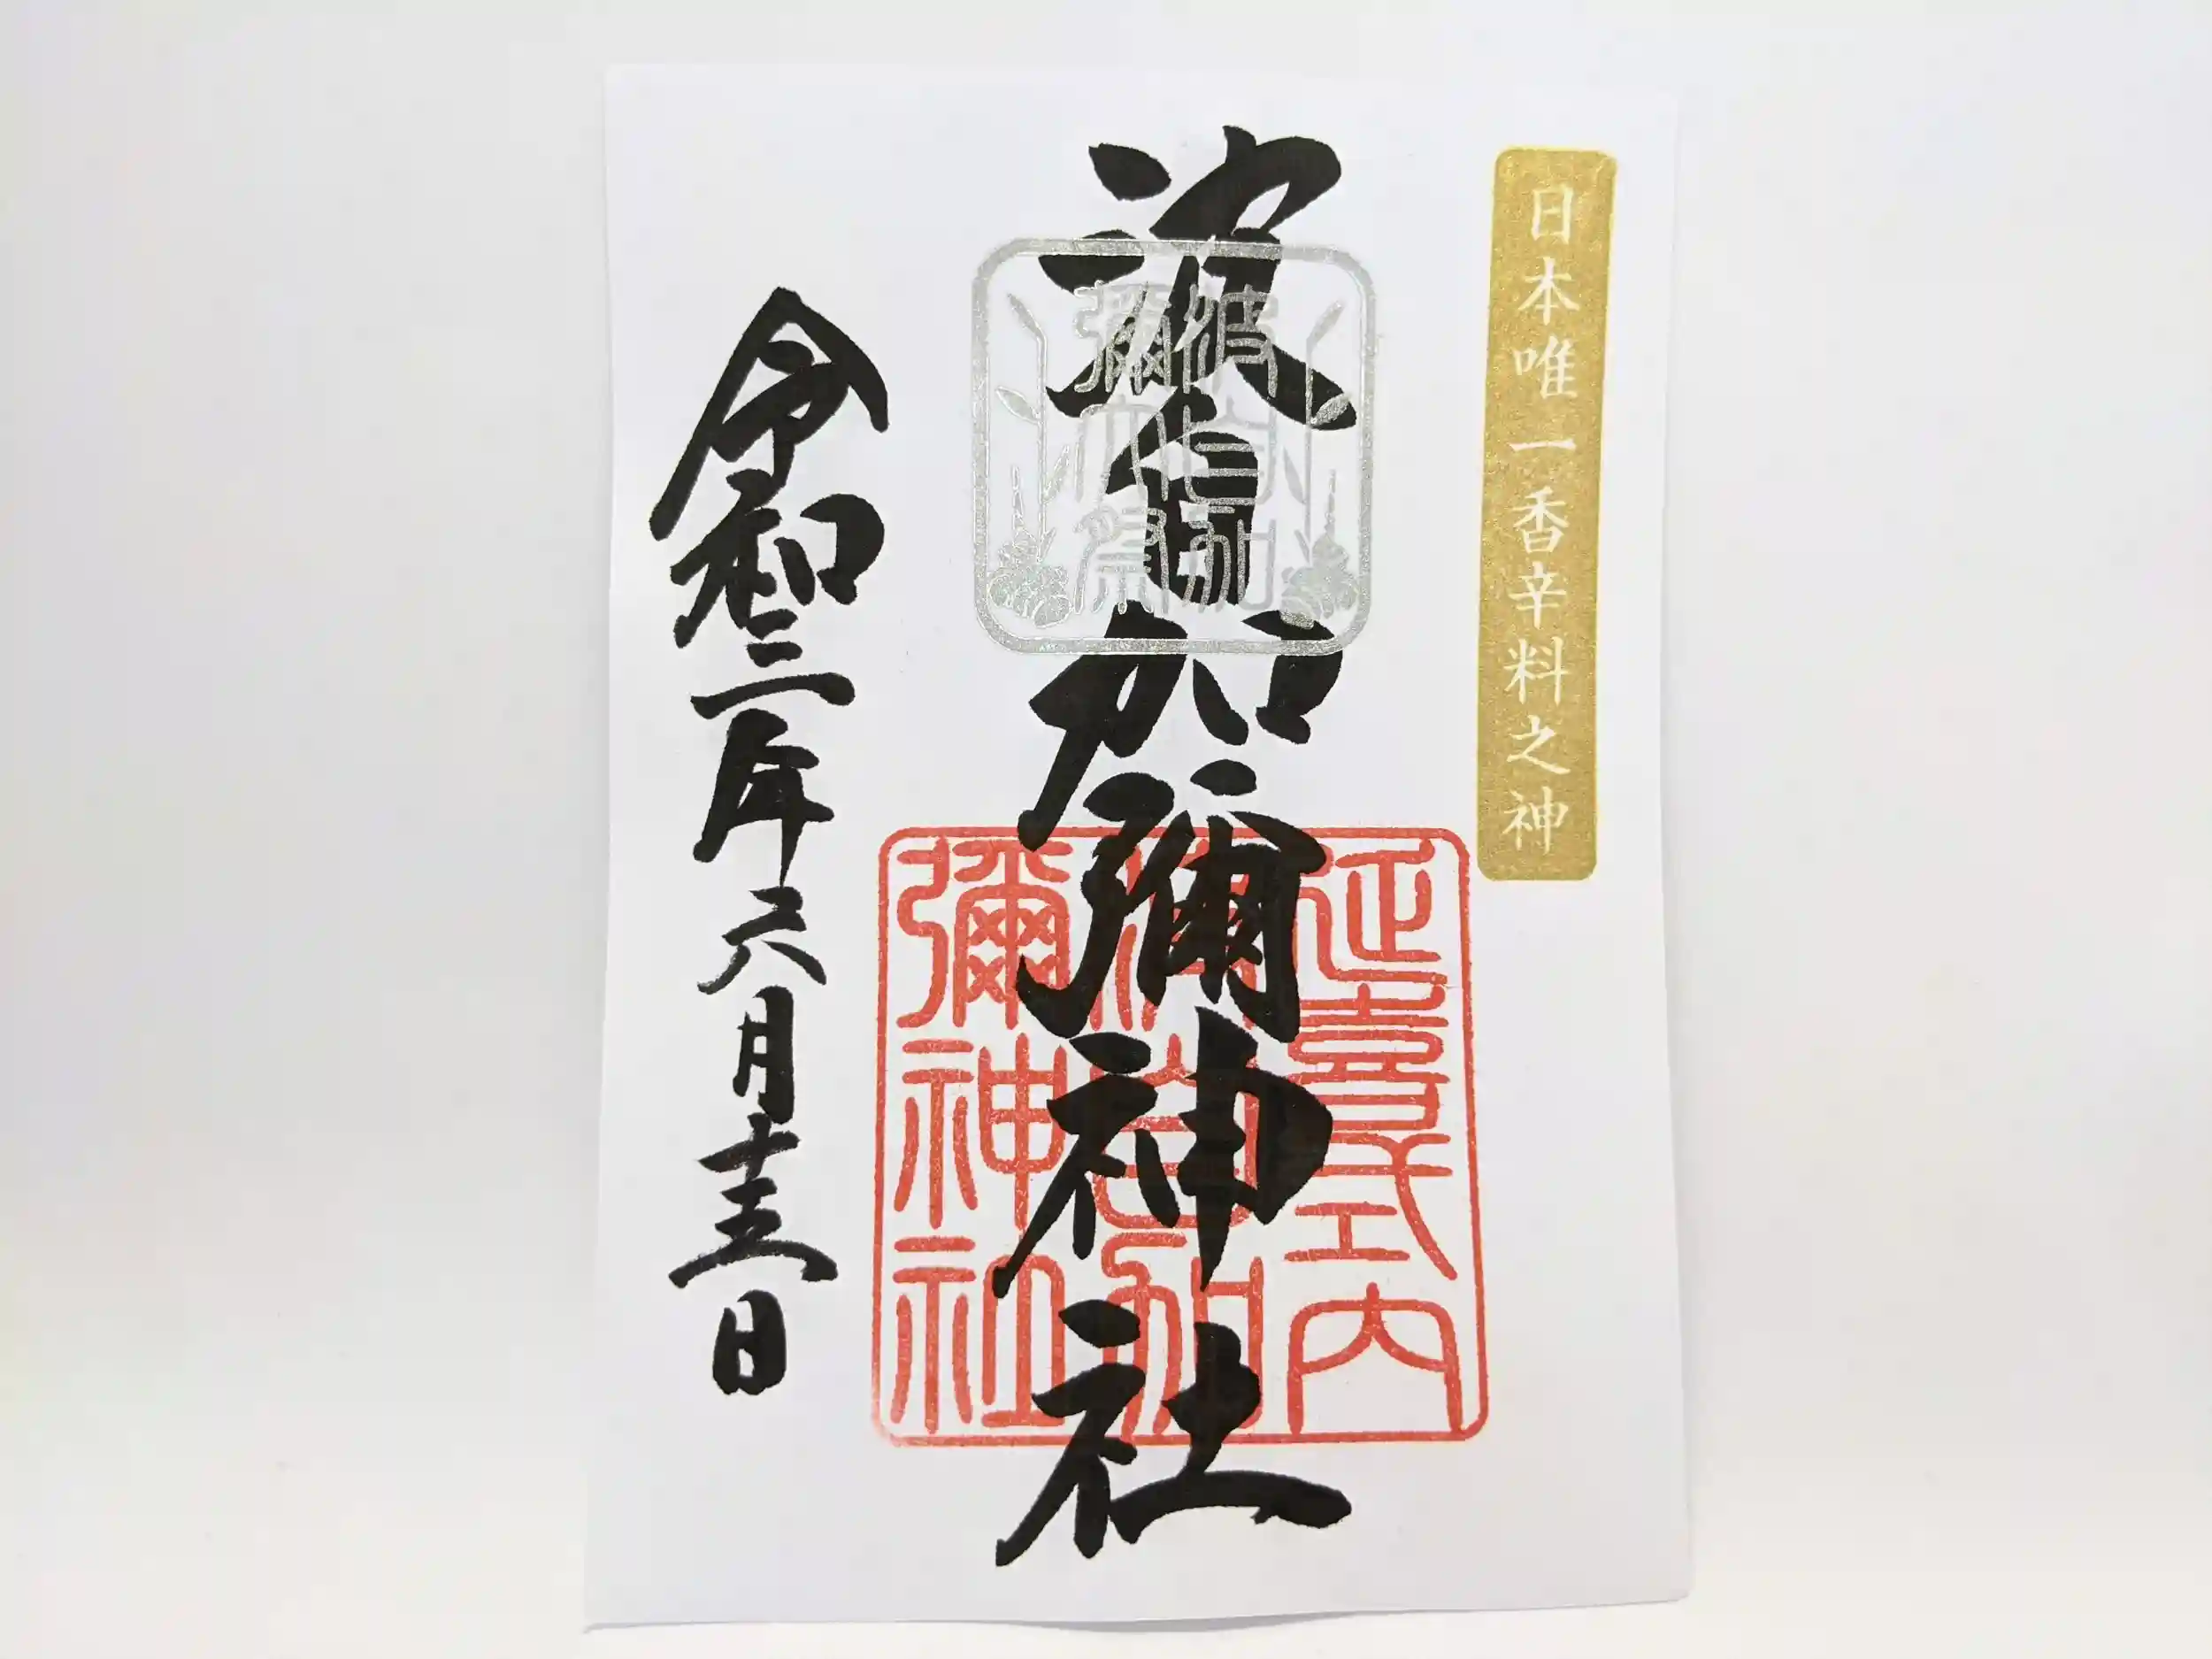 日本唯一香辛料之神
波自加彌神社
波自加
彌大祭
延喜式内
波自加
彌神社
令和三年六月十五日